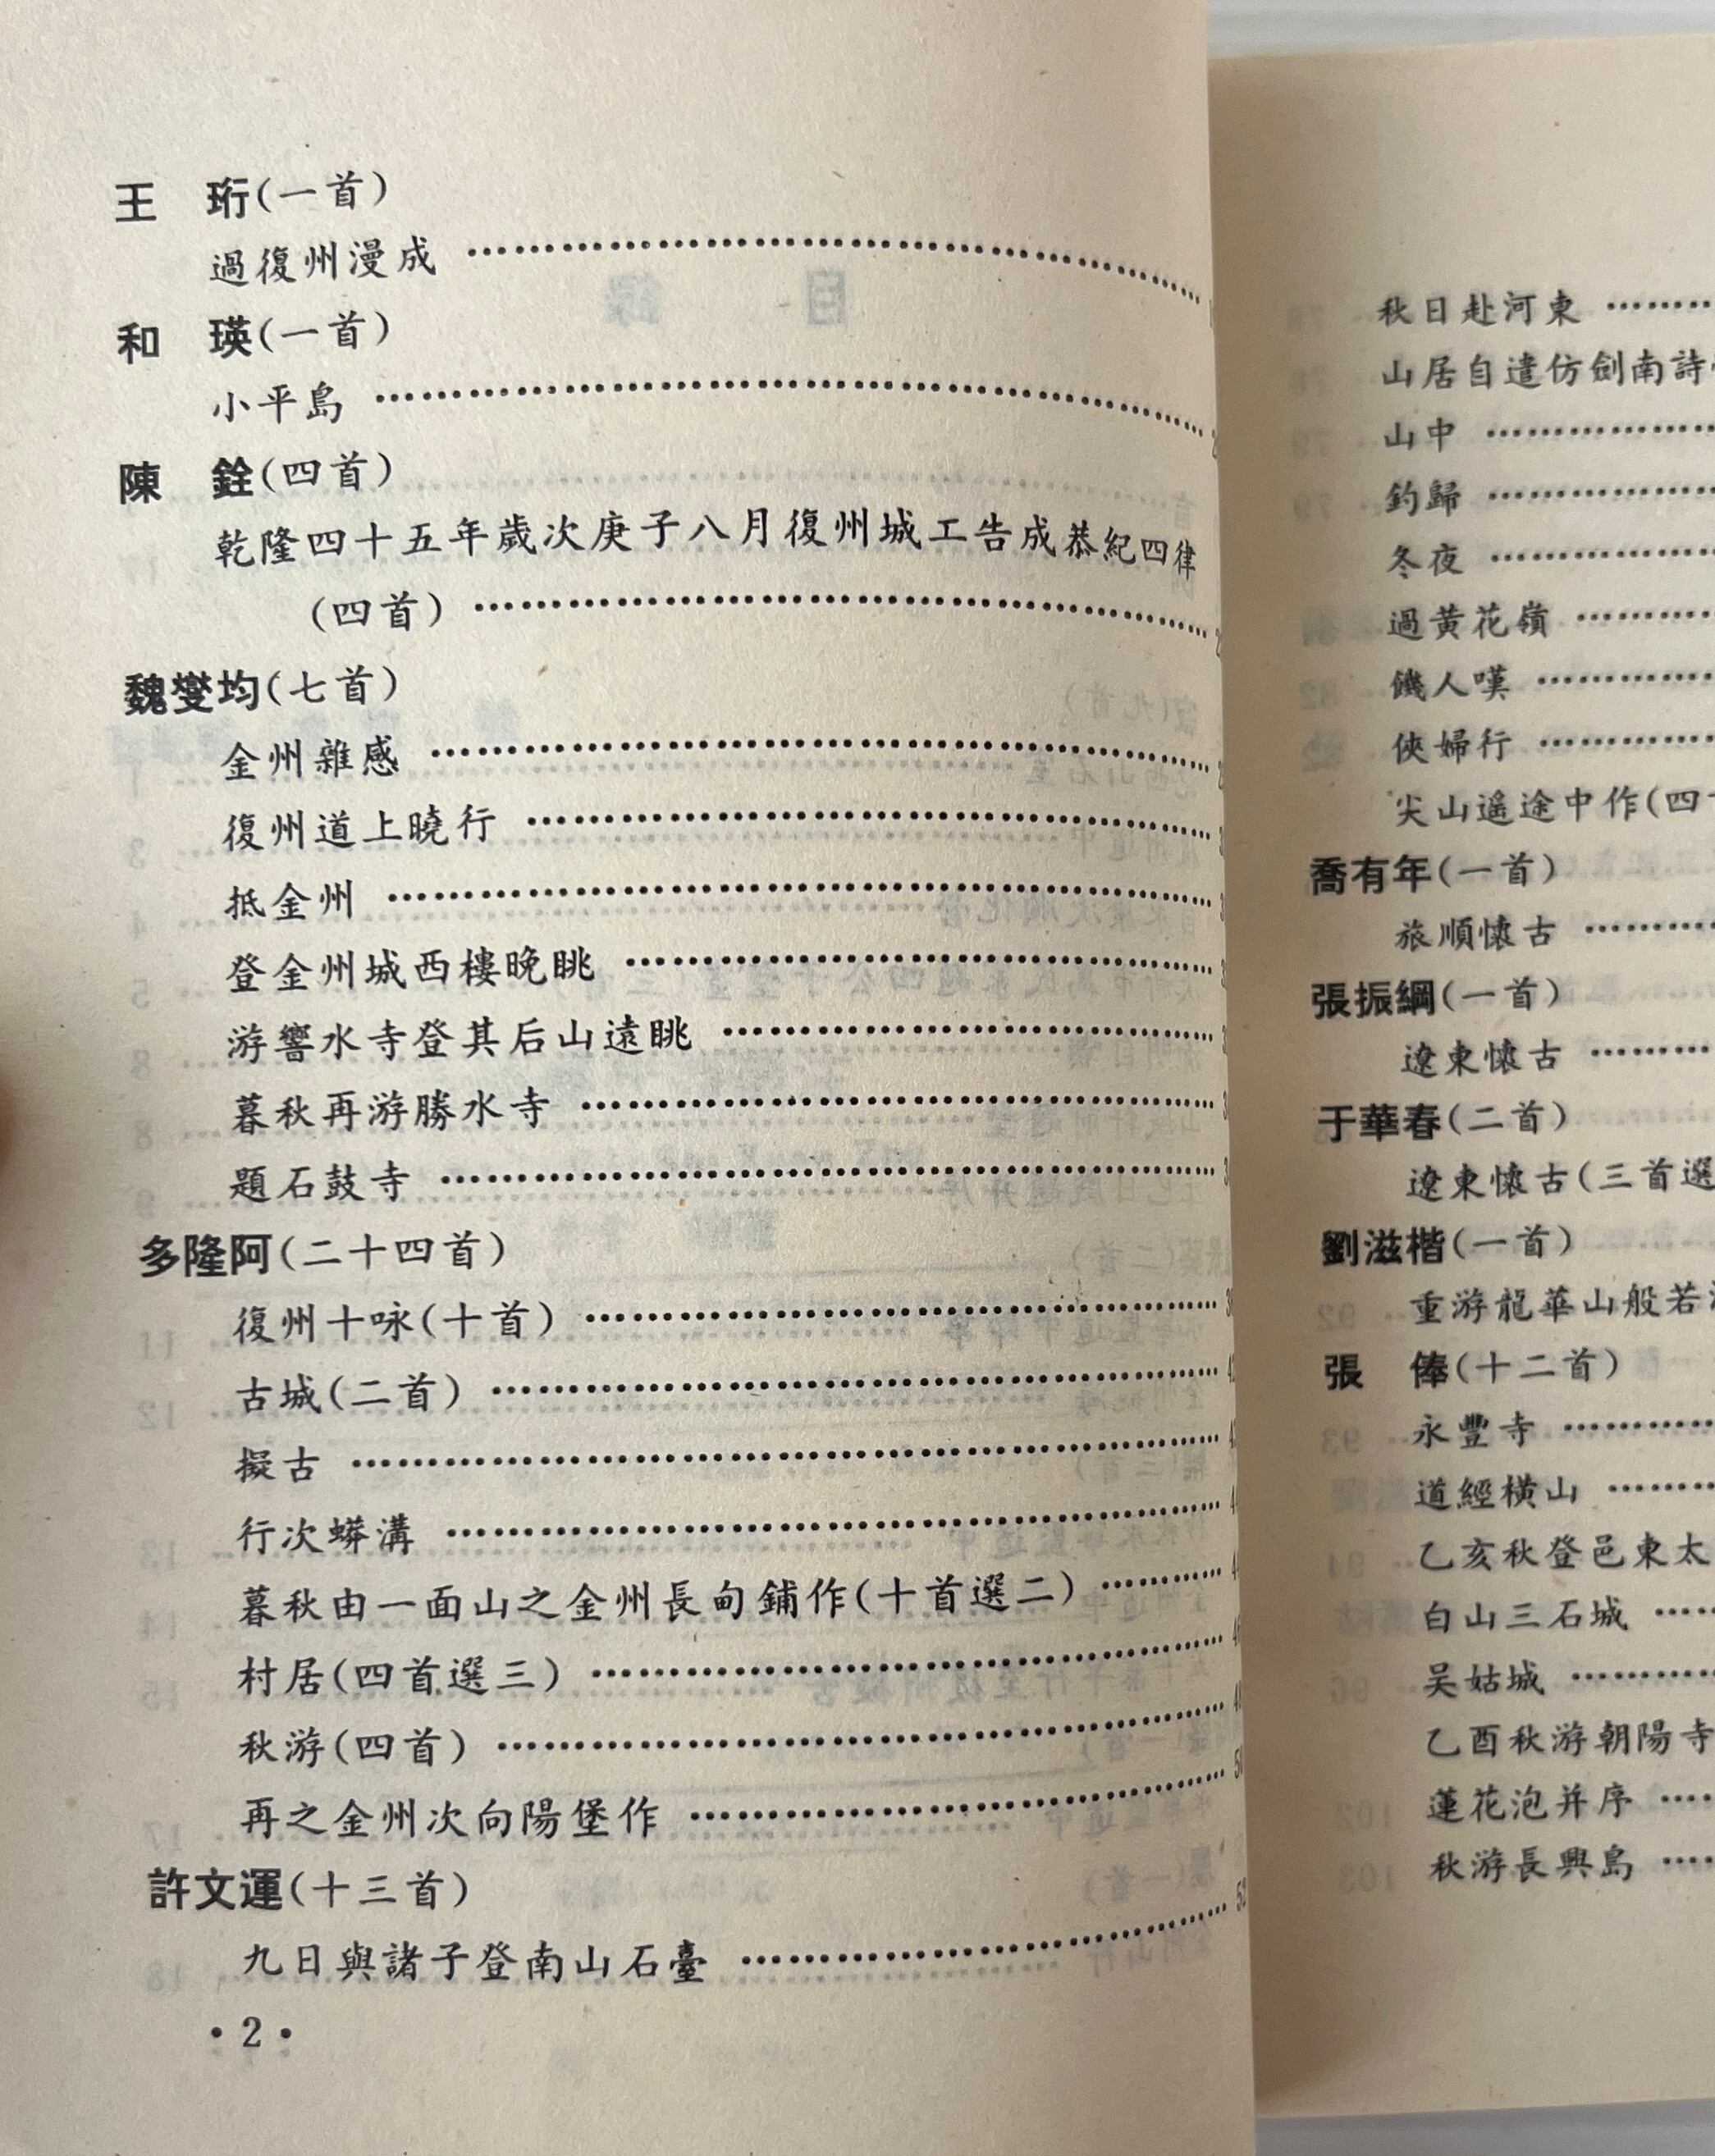 王　珩(一首)
過復州漫成 ……
和　瑛(一首)
小平島 ……
陳　銓(四首)
乾隆四十五年歲次庚子八月復州城工告成恭紀四律
(四首) ……
魏燮均(七首)
金州雜感 ……
復州道上曉行 ……
抵金州 ……
登金州城西樓晚眺 ……
游響水寺登其后山遠眺 ……
暮秋再游勝水寺 ……
題石鼓寺 ……
多隆阿(二十四首)
復州十咏(十首) ……
古城(二首) ……
擬古 ……
行次蟒溝 ……
暮秋由一面山之金州長甸鋪作(十首選二) ……
村居(四首選三) ……
秋游(四首) ……
再之金州次向陽堡作 ……
許文運(十三首)
九日與諸子登南山石臺 ……
·2·
秋日赴河東 ……
山居自遣仿劍南詩
山中 ……
釣歸 ……
冬夜 ……
過黃花嶺 ……
饑人嘆 ……
俠婦行 ……
尖山遙途中作(四
喬有年(一首)
旅順懷古 ……
張振綱(一首)
遼東懷古 ……
于華春(二首)
遼東懷古(三首選
劉滋楷(一首)
重游龍華山般若
張　俸(十二首)
永豐寺 ……
道經橫山 ……
乙亥秋登邑東太
白山三石城 ……
吴姑城 ……
乙酉秋游朝陽寺
蓮花泡并序 ……
秋游長興島 ……